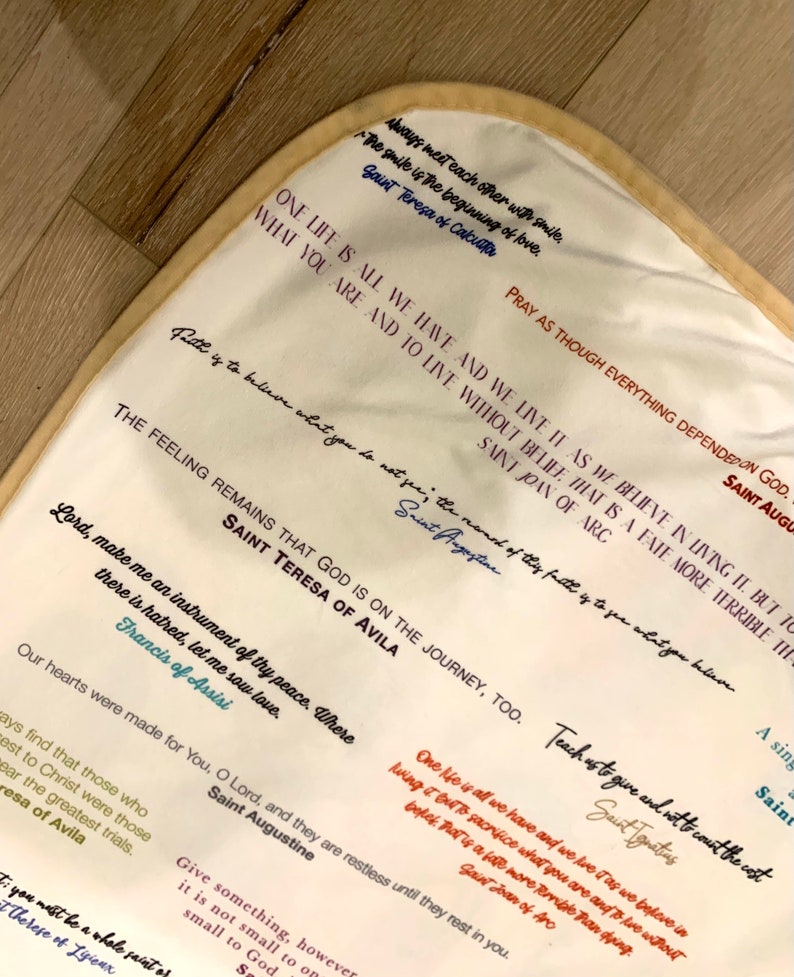 Always meet each other with smile,
the smile is the beginning of love.
Saint Teresa of Calcutta
PRAY AS THOUGH EVERYTHING DEPENDED ON GOD.
SAINT AUGU
ONE LIFE IS ALL WE HAVE AND WE LIVE IT AS WE BELIEVE IN LIVING IT. BUT TO
WHAT YOU ARE AND TO LIVE WITHOUT BELIEF, THAT IS A FATE MORE TERRIBLE THA
SAINT JOAN OF ARC
Faith is to believe what you do not see; the reward of this faith is to see what you believe.
Saint Augustine
THE FEELING REMAINS THAT GOD IS ON THE JOURNEY, TOO.
SAINT TERESA OF AVILA
Lord, make me an instrument of thy peace. Where
there is hatred, let me sow love.
Francis of Assisi
Our hearts were made for You, O Lord, and they are restless until they rest in you.
Saint Augustine
Teach us to give and not to count the cost
Saint Ignatius
A sing
Saint
One life is all we have and we live it as we believe in
living it but to sacrifice what you are and to live without
belief, that is a fate more terrible than dying.
Saint Joan of Arc
ays find that those who
rest to Christ were those
bear the greatest trials.
resa of Avila
Give something, however
it is not small to on
small to God.
t; you must be a whole saint or
t Therese of Lisieux